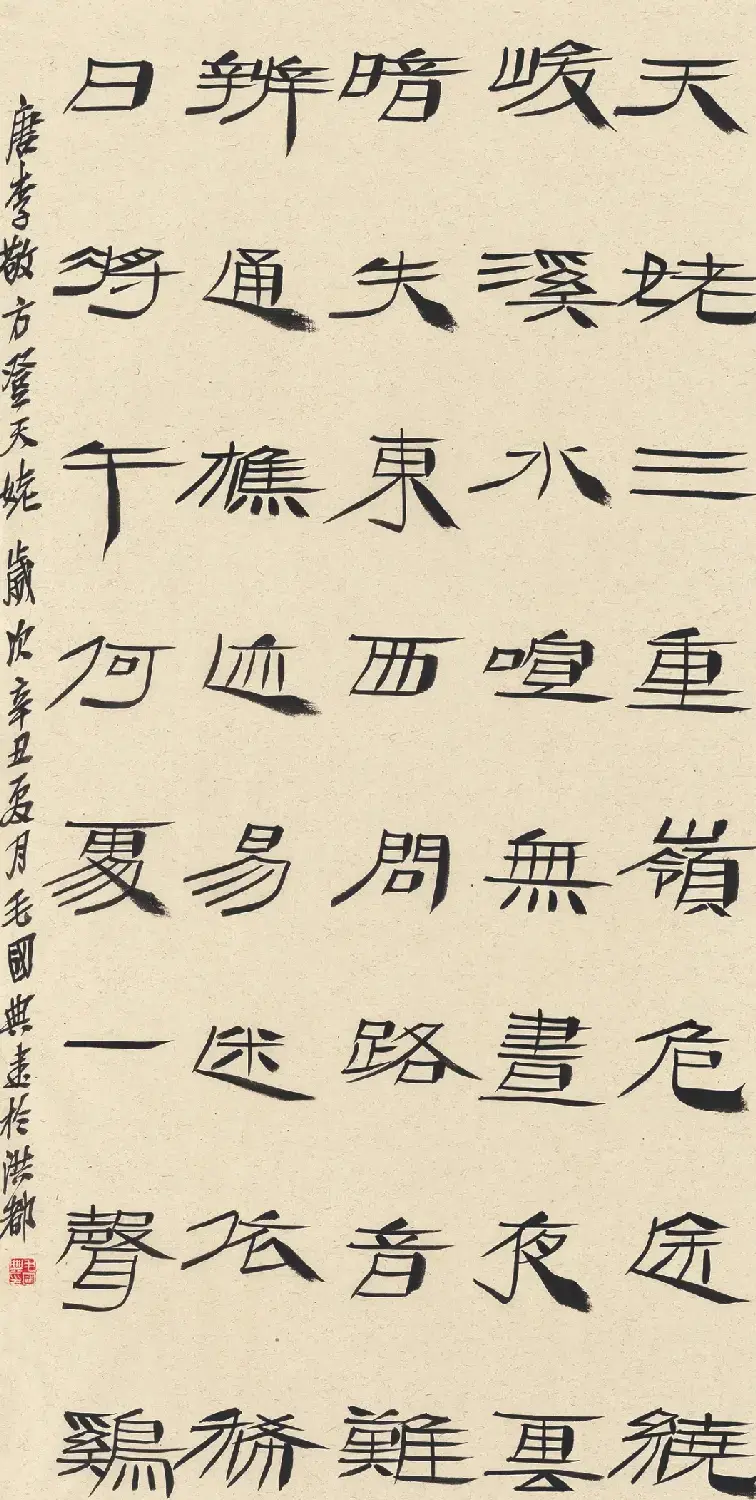 天姥三重嶺危途繞
峻溪水喧無晝夜雲
暗失東西問路音難
辨通樵迹易迷依稀
日將午何處一聲鷄
唐李敬方登天姥 歲次辛丑夏月毛國典書於洪都